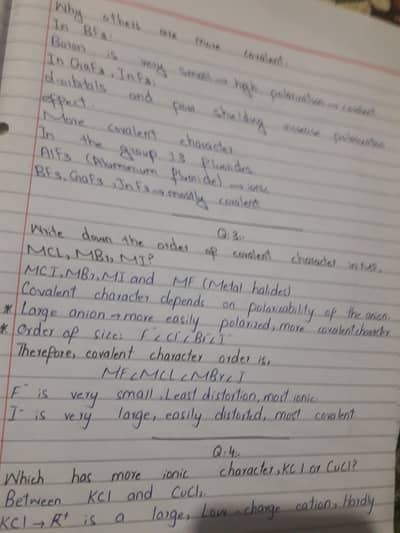 Why others are more covalent.
In BF3:
Boron is very small → high polarization → covalent
In GaF3, InF3:
d-orbitals and poor shielding increase polarization
effect.
More covalent character
In the group 13 fluorides
AlF3 (Aluminium fluoride) → ionic
BF3, GaF3, InF3 → mostly covalent
Q:3..
Write down the order of covalent character in
MCl, MBr, MI?
MCI, MBr, MI and MF (Metal halides)
Covalent character depends on polarizability of the anion.
* Large anion → more easily polarized, more covalent character
* Order of size: F⁻<Cl⁻<Br⁻<I⁻
Therefore, covalent character order is,
MF<MCL<MBr<I
F⁻ is very small, Least distortion, most ionic
I⁻ is very large, easily distorted, most covalent
Q:4..
Which has more ionic character, KCl or CuCl?
Between KCl and CuCl,
KCl → K⁺ is a large, Low-charge cation, Hardly